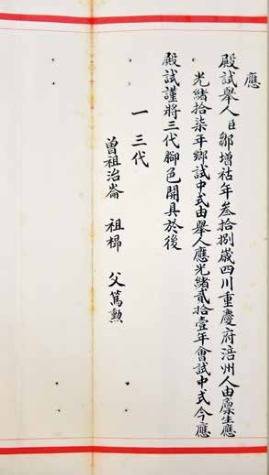 應
殿試舉人臣鄒增祜年叁拾捌歲四川重慶府涪州人由廩生應
光緒拾柒年鄉試中式由舉人應光緒貳拾壹年會試中式今應
殿試謹將三代腳色開具於後
一三代
曾祖治崙 祖櫸 父篤勲